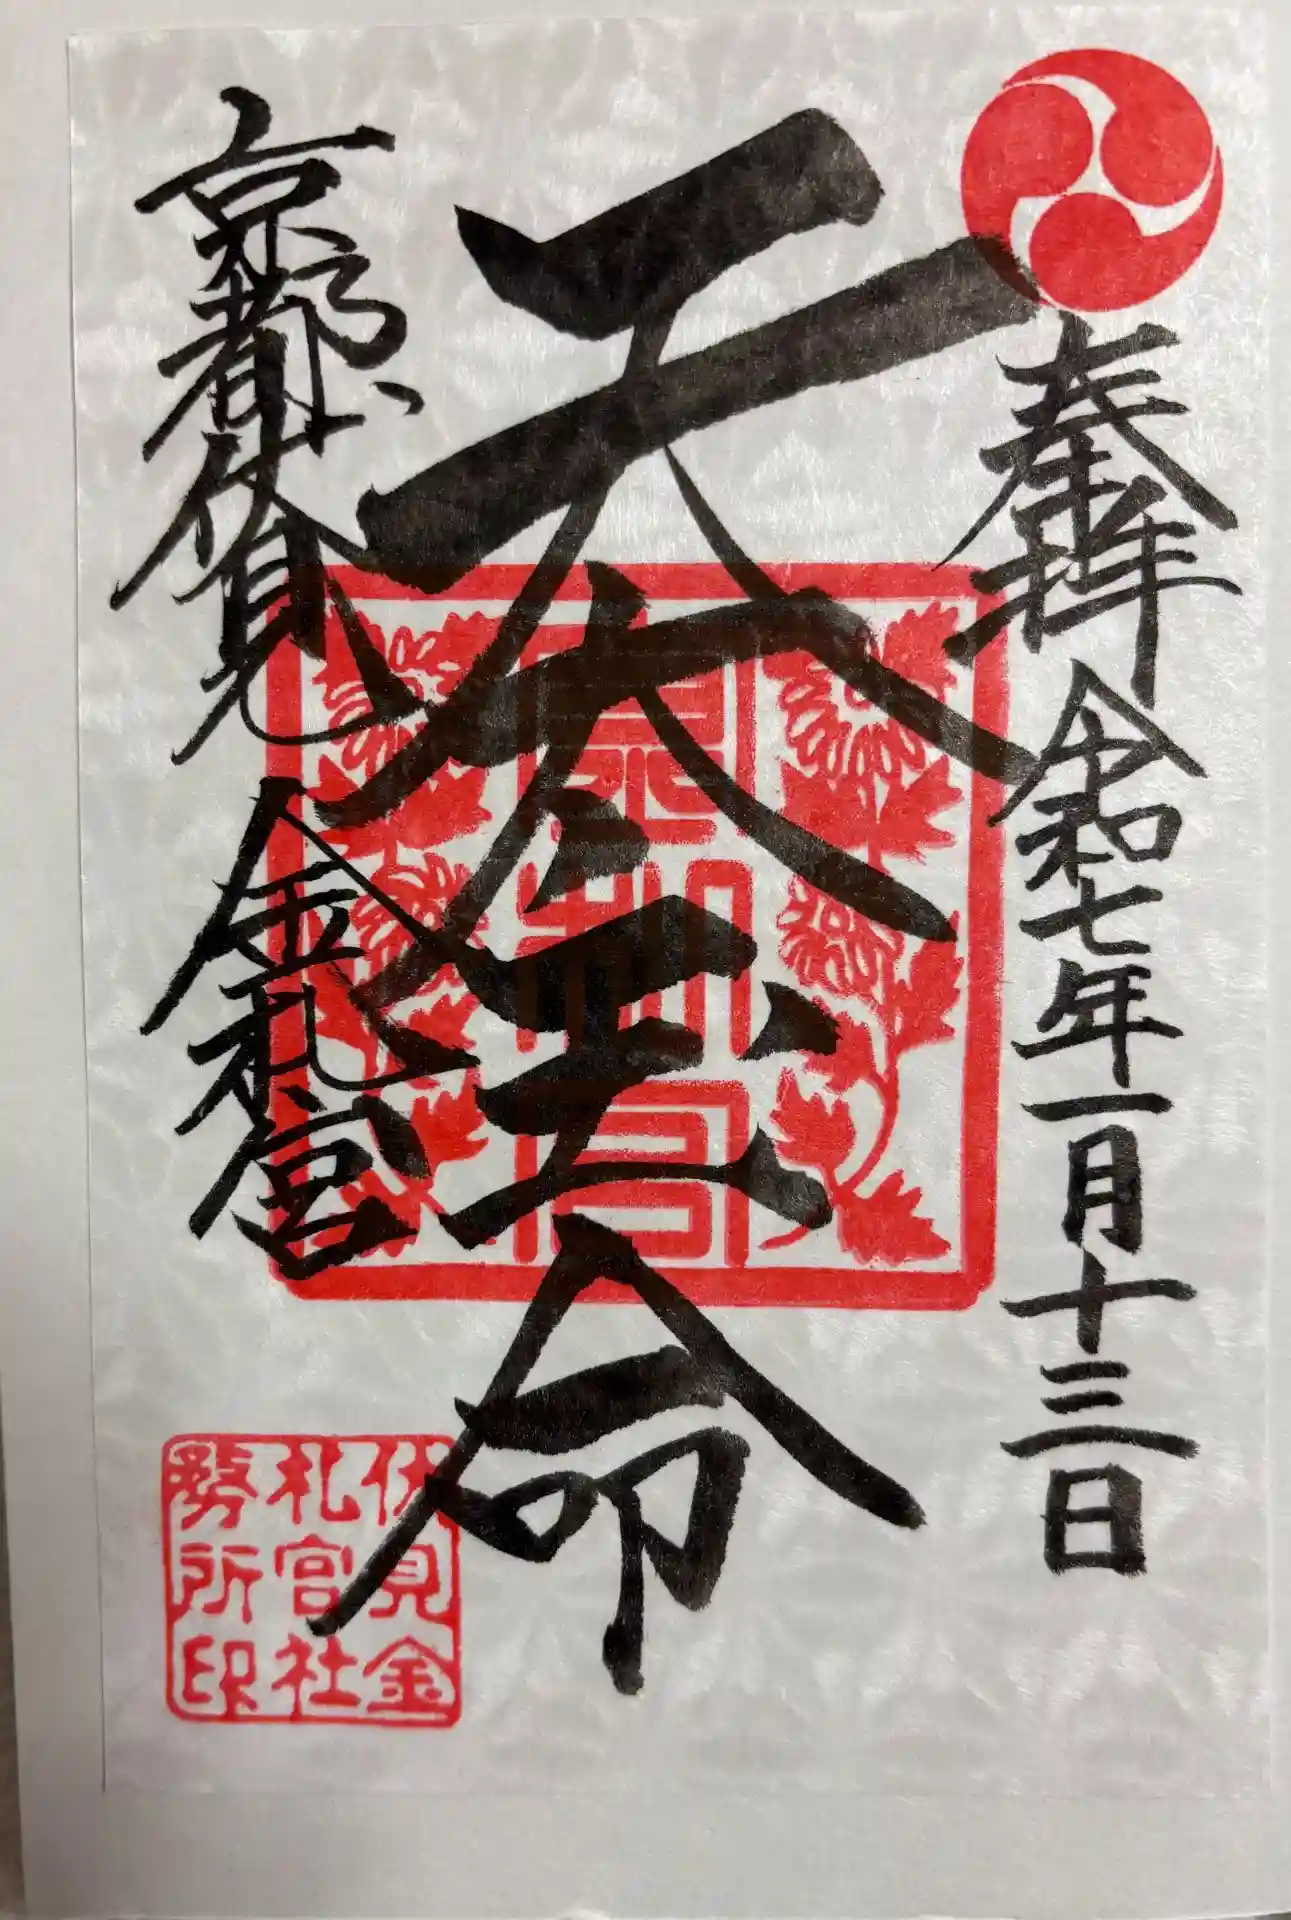 奉拝 令和七年一月十三日
天太玉命
京都伏見 金札宮
金札宮
伏見金
札宮社
務所印